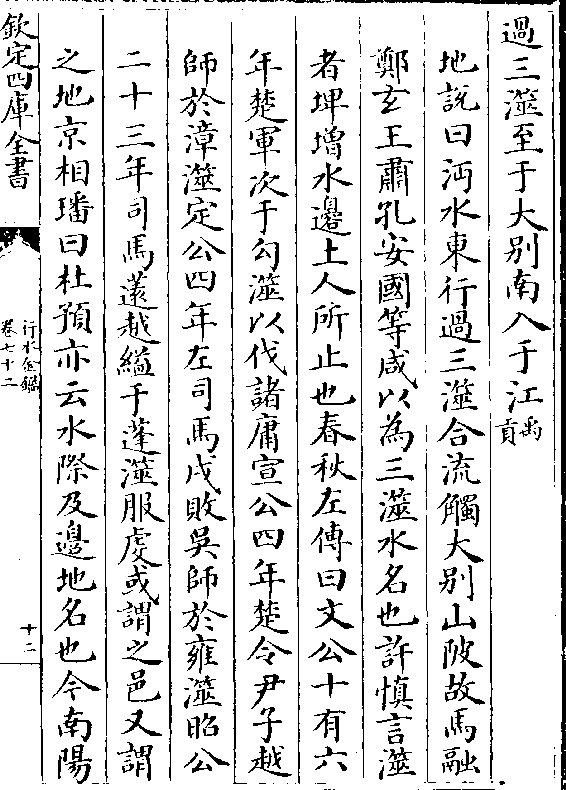 過三澨至于大别南入于江禹貢
地說曰沔水東行過三澨合流觸大别山陂故馬融
鄭玄王肅孔安國等咸以為三澨水名也許慎言澨
者埤增水邊土人所止也春秋左傳曰文公十有六
年楚軍次于勾澨以伐諸庸宣公四年楚令尹子越
師於漳澨定公四年左司馬戌敗吳師於雍澨昭公
二十三年司馬薳越縊于薳澨服虔或謂之邑又謂
之地京相璠曰杜預亦云水際及邊地名也今南陽
欽定四庫全書
行水金鑑
卷七十二
十二